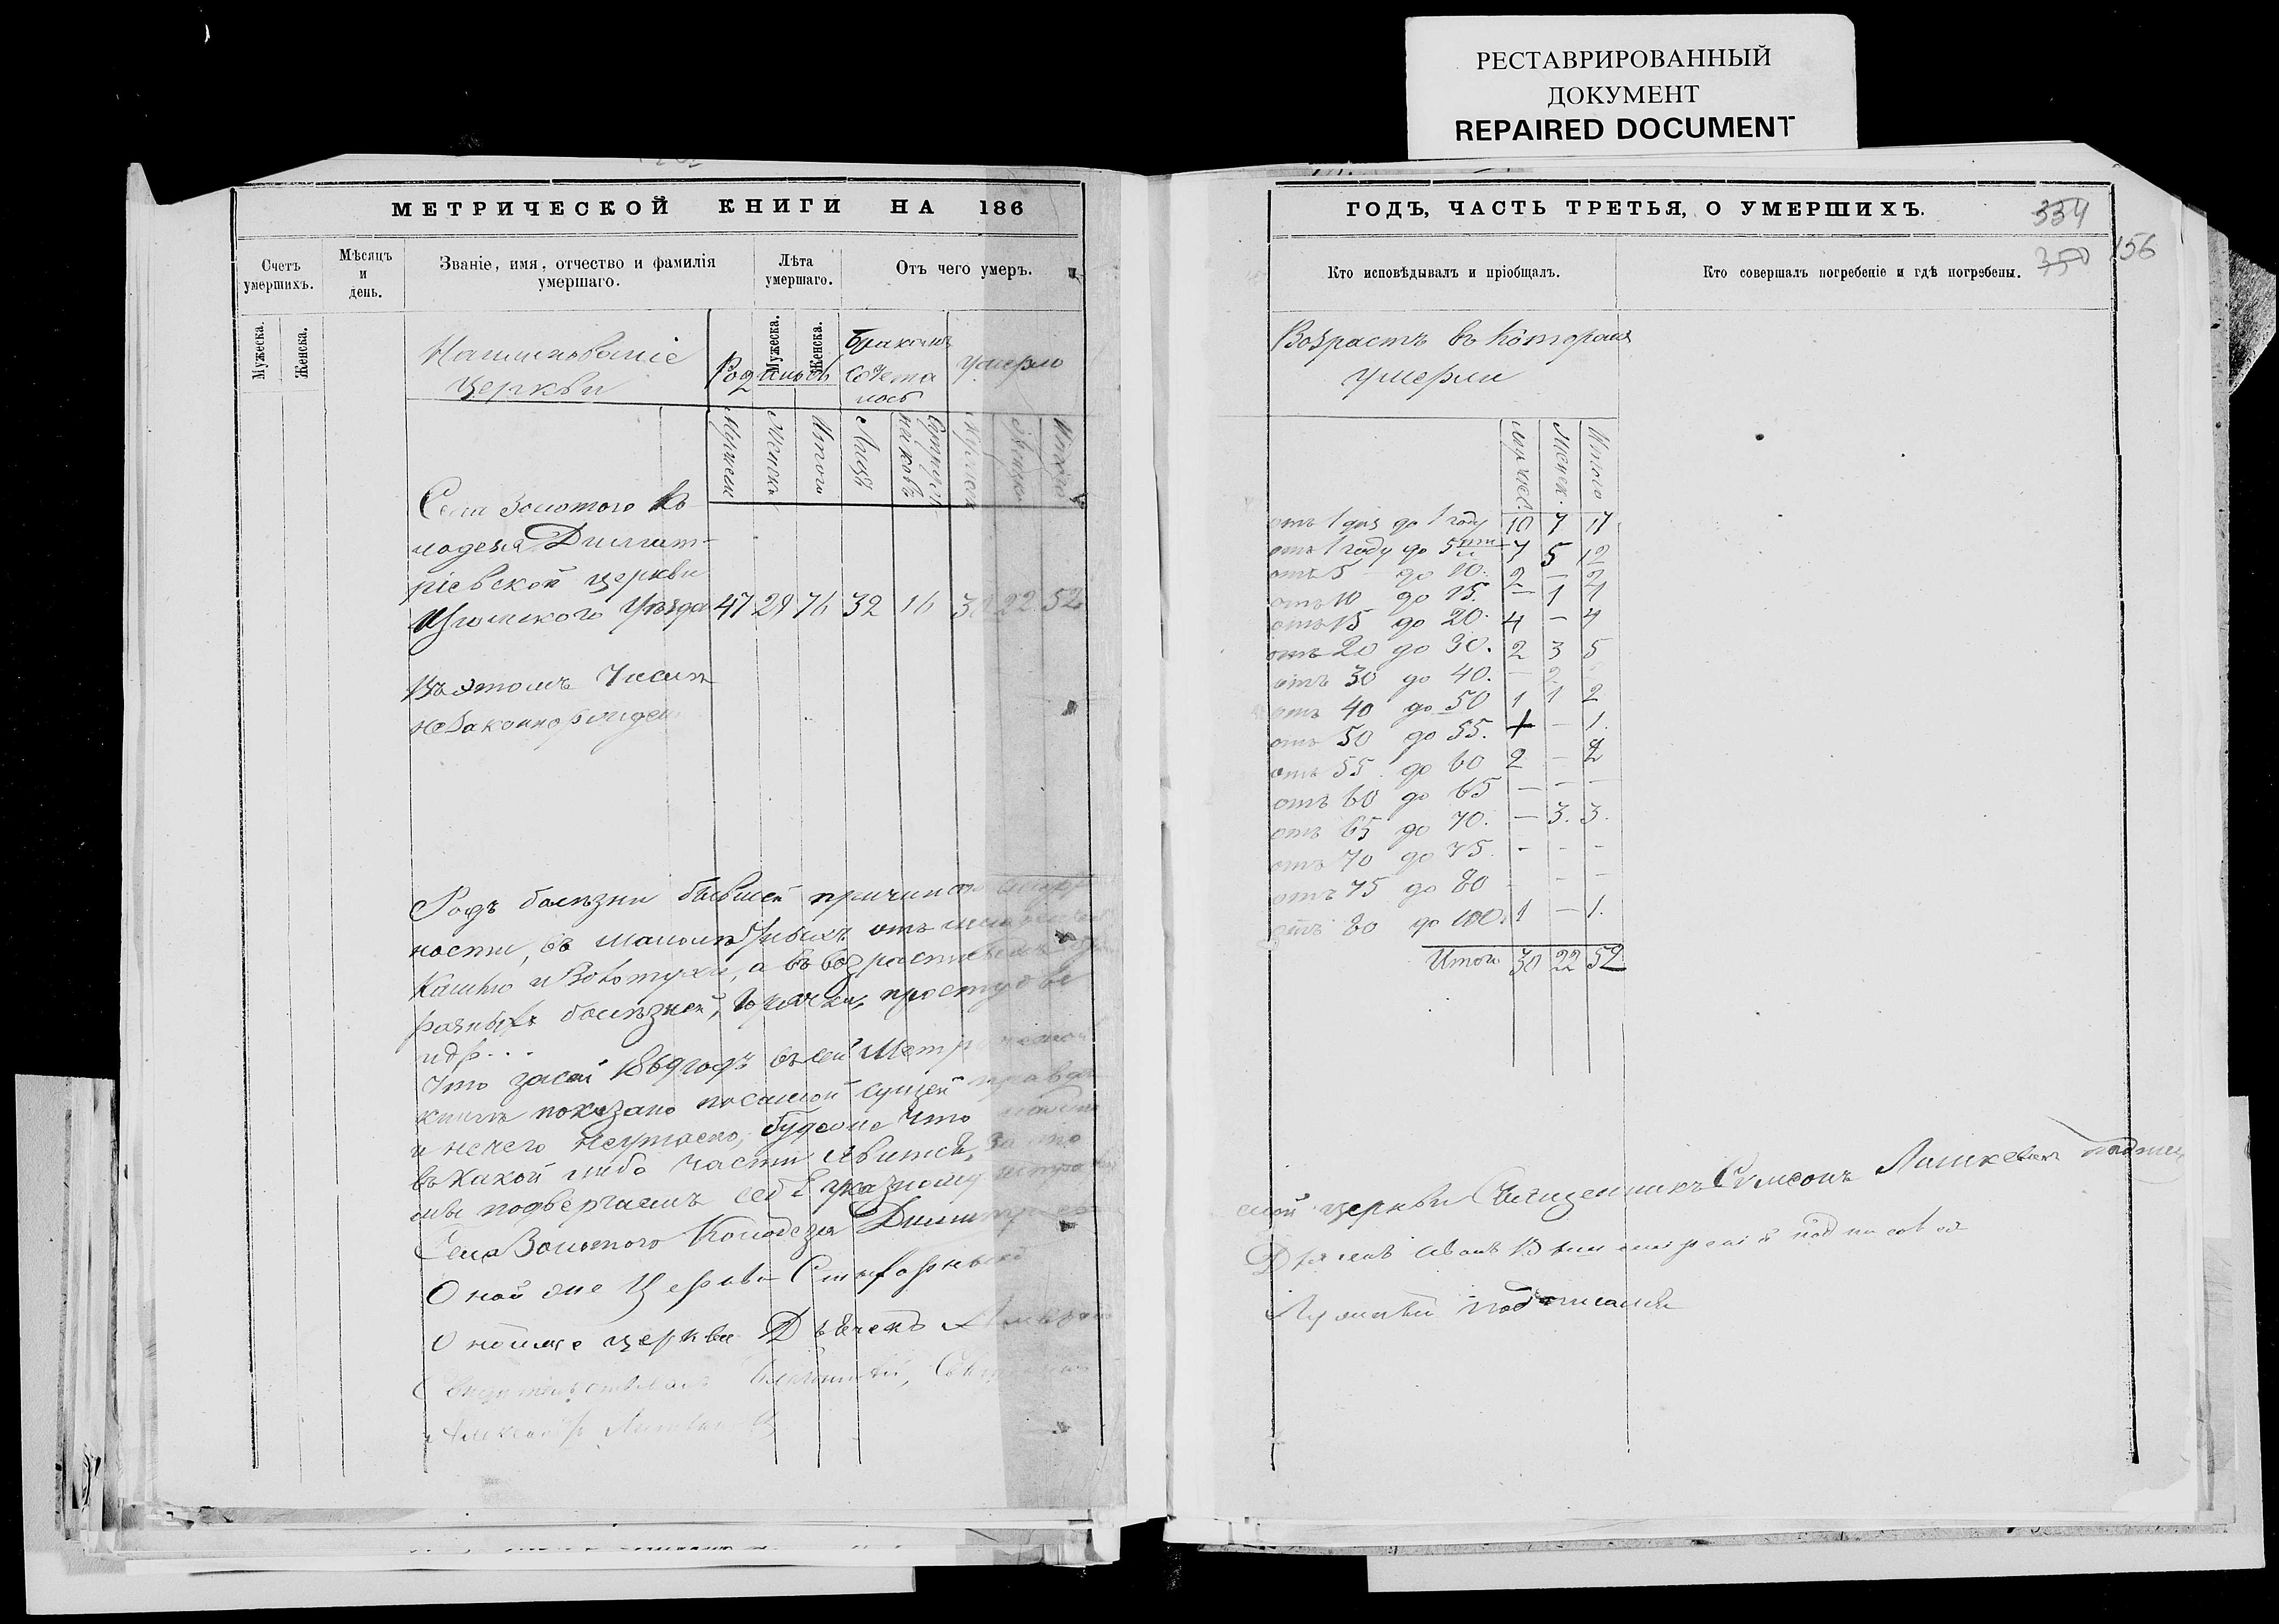 РЕСТАВРИРОВАННЫЙ
ДОКУМЕНТ
REPAIRED DOCUMENT
МЕТРИЧЕСКОЙ КНИГИ НА 186
Счетъ умершихъ.
Мѣсяцъ и день.
Званіе, имя, отчество и фамилія умершаго.
Лѣта умершаго.
Отъ чего умеръ.
Мужеска.
Женска.
Мужеска.
Женска.
Наименованіе
церкви
Родилось
Бракомъ
сочета
лось
умерло
Мужеск
Женск
Итого
Лицъ
Женско
Итого
Села Золотого Ко-
лодезя Димит-
ріевской церкви
Изюмского Уѣзда 47 29 76 32 16 30 22 52
Въ этомъ числѣ
незаконнорожден
Родъ болѣзни бывшей причиною
ности, въ малолѣтныхъ отъ
кашлю и Воботухи, а въ возрастныхъ
разныхъ болѣзней, горячки, простуды
и др...
Что засей 1869 годъ въ сей Метрической
книгѣ показано по самой сущей правдѣ
и нечего неутаено, будеже что
въ какой либо части явится, за то
мы подвергаемъ себя указному
Села Золотого Колодезя Димитріев
Оной же Церкви
Оной же церкви Дьячекъ
ГОДЪ, ЧАСТЬ ТРЕТЬЯ, О УМЕРШИХЪ.
334
350
156
Кто исповѣдывалъ и пріобщалъ.
Кто совершалъ погребеніе и гдѣ погребены.
Возрастъ въ которомъ
умерли
Мужеск.
Женск.
Итого
отъ 1 дня до 1 году 10 7 17
отъ 1 году до 5ти 7 5 12
отъ 5 до 10. 2 — 2
отъ 10 до 15. — 1 1
отъ 15 до 20. 4 — 4
отъ 20 до 30. 2 3 5
отъ 30 до 40. — 2
отъ 40 до 50 1 1 2
отъ 50 до 55. 1 — 1.
отъ 55 до 60 2 — 2
отъ 60 до 65 — — —
отъ 65 до 70. — 3. 3.
отъ 70 до 75. - - -
отъ 75 до 80 - - -
отъ 80 до 100. 1 — 1.
Итого 30 22 52
ской церкви Священникъ Симеонъ
Дьяконъ Иванъ подписался
подписался